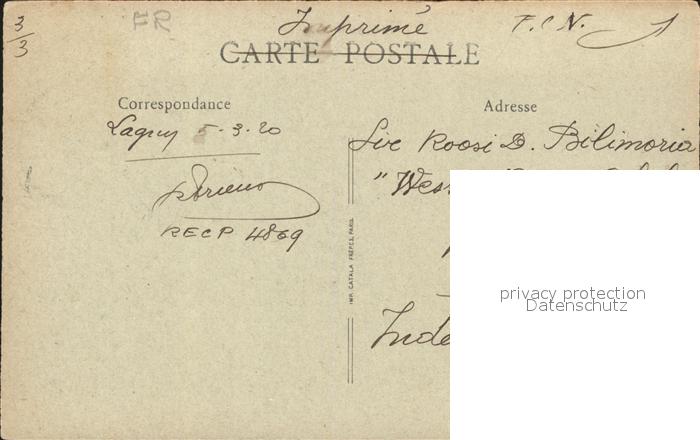 3/3
FR
Imprimé
T.C.N.
CARTE POSTALE
Correspondance
Lagny 5-3-20
RECP 4869
IMP. CATALA FRÈRES, PARIS
Adresse
Roosi D. Bilimoria
"Wes
Inde
privacy protection
Datenschutz